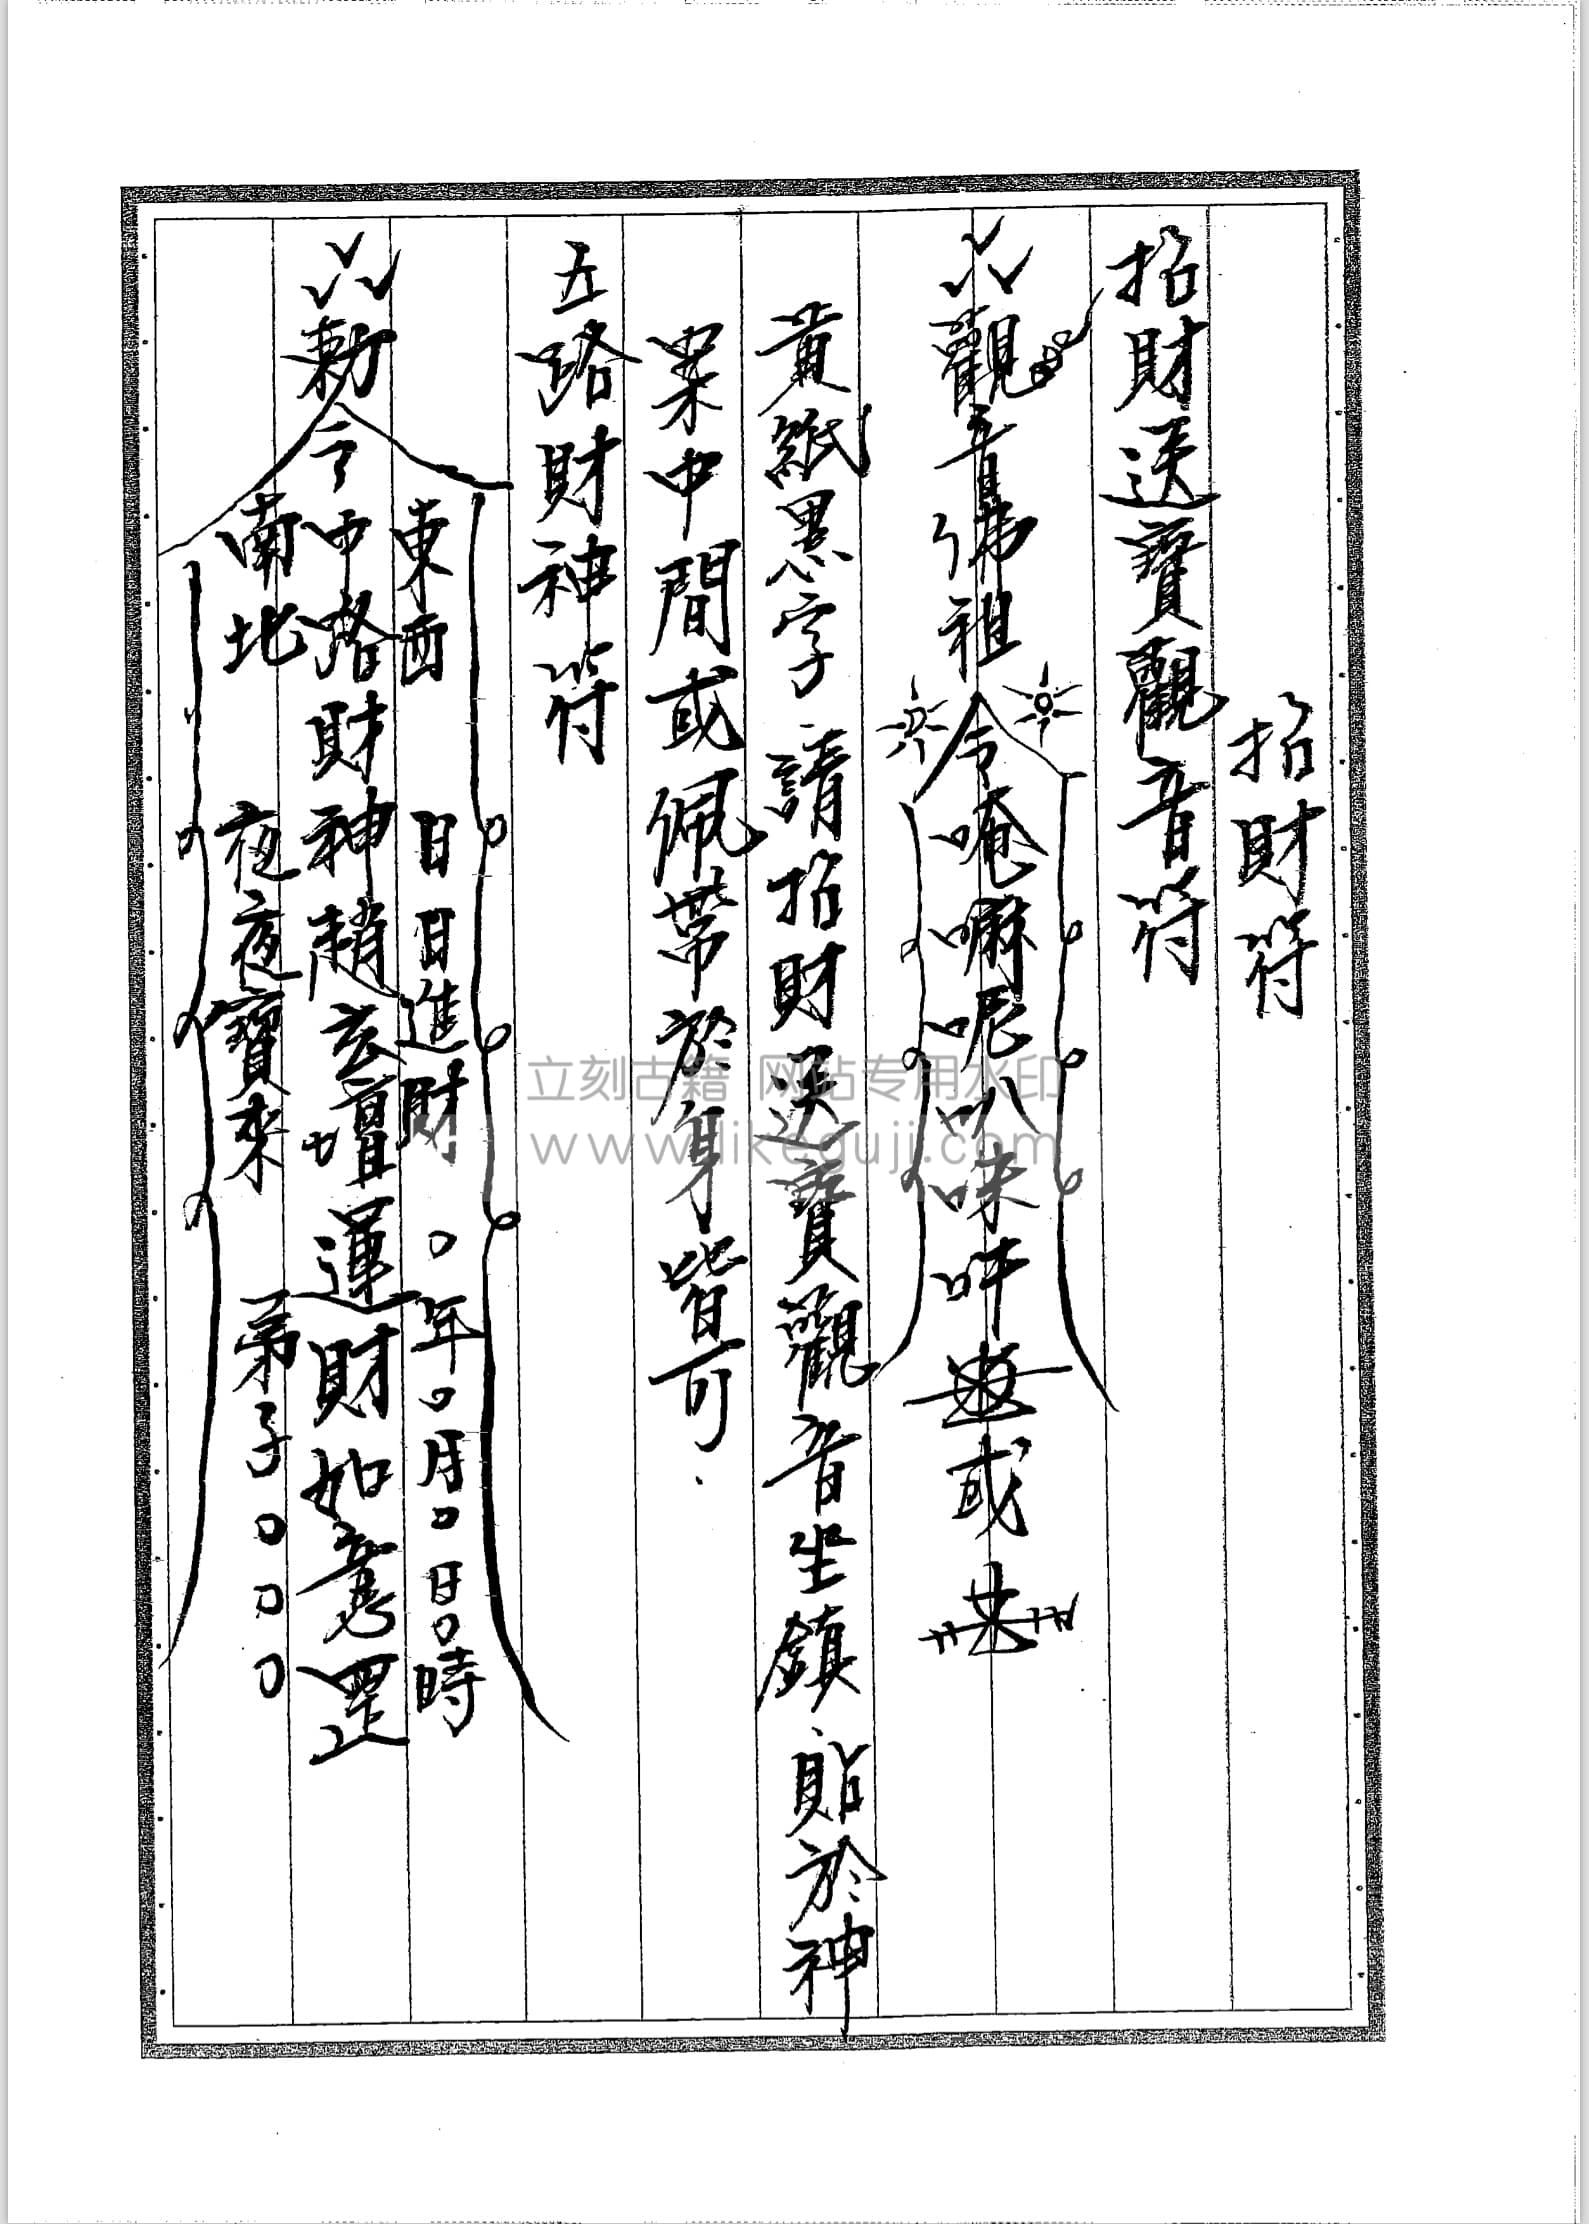 招財符
招財送寶觀音符
觀音佛祖令唵嘛呢叭咪吽
或
黃紙黑字請招財送寶觀音坐鎮、貼於神
桌中間或佩帶於身皆可.
五路財神符
東西 日日進財 〇年〇月〇日〇時
勅令中路財神趙玄壇運財如意罡
南北 夜夜寶來 弟子〇〇〇
立刻古籍 网站专用水印
www.likeguji.com